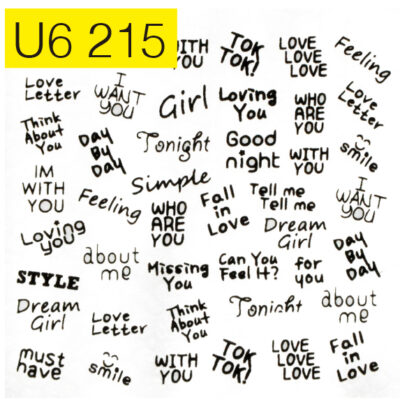 U6 215
WITH
YOU
TOK
TOK!
LOVE
LOVE
LOVE
Feeling
Love
Letter
I
WANT
YOU
Girl
Loving
You
WHO
ARE
YOU
Love
Letter
Think
About
You
Day
By
Day
Tonight
Good
night
WITH
YOU
smile
IM
WITH
YOU
Feeling
Simple
WHO
ARE
YOU
Fall
in
Love
Tell me
Tell me
I
WANT
YOU
Loving
you
about
me
Missing
You
Can You
Feel It?
Dream
Girl
for
you
Day
By
Day
STYLE
Dream
Girl
Love
Letter
Think
About
You
Tonight
about
me
must
have
smile
WITH
YOU
TOK
TOK!
LOVE
LOVE
LOVE
Fall
in
Love